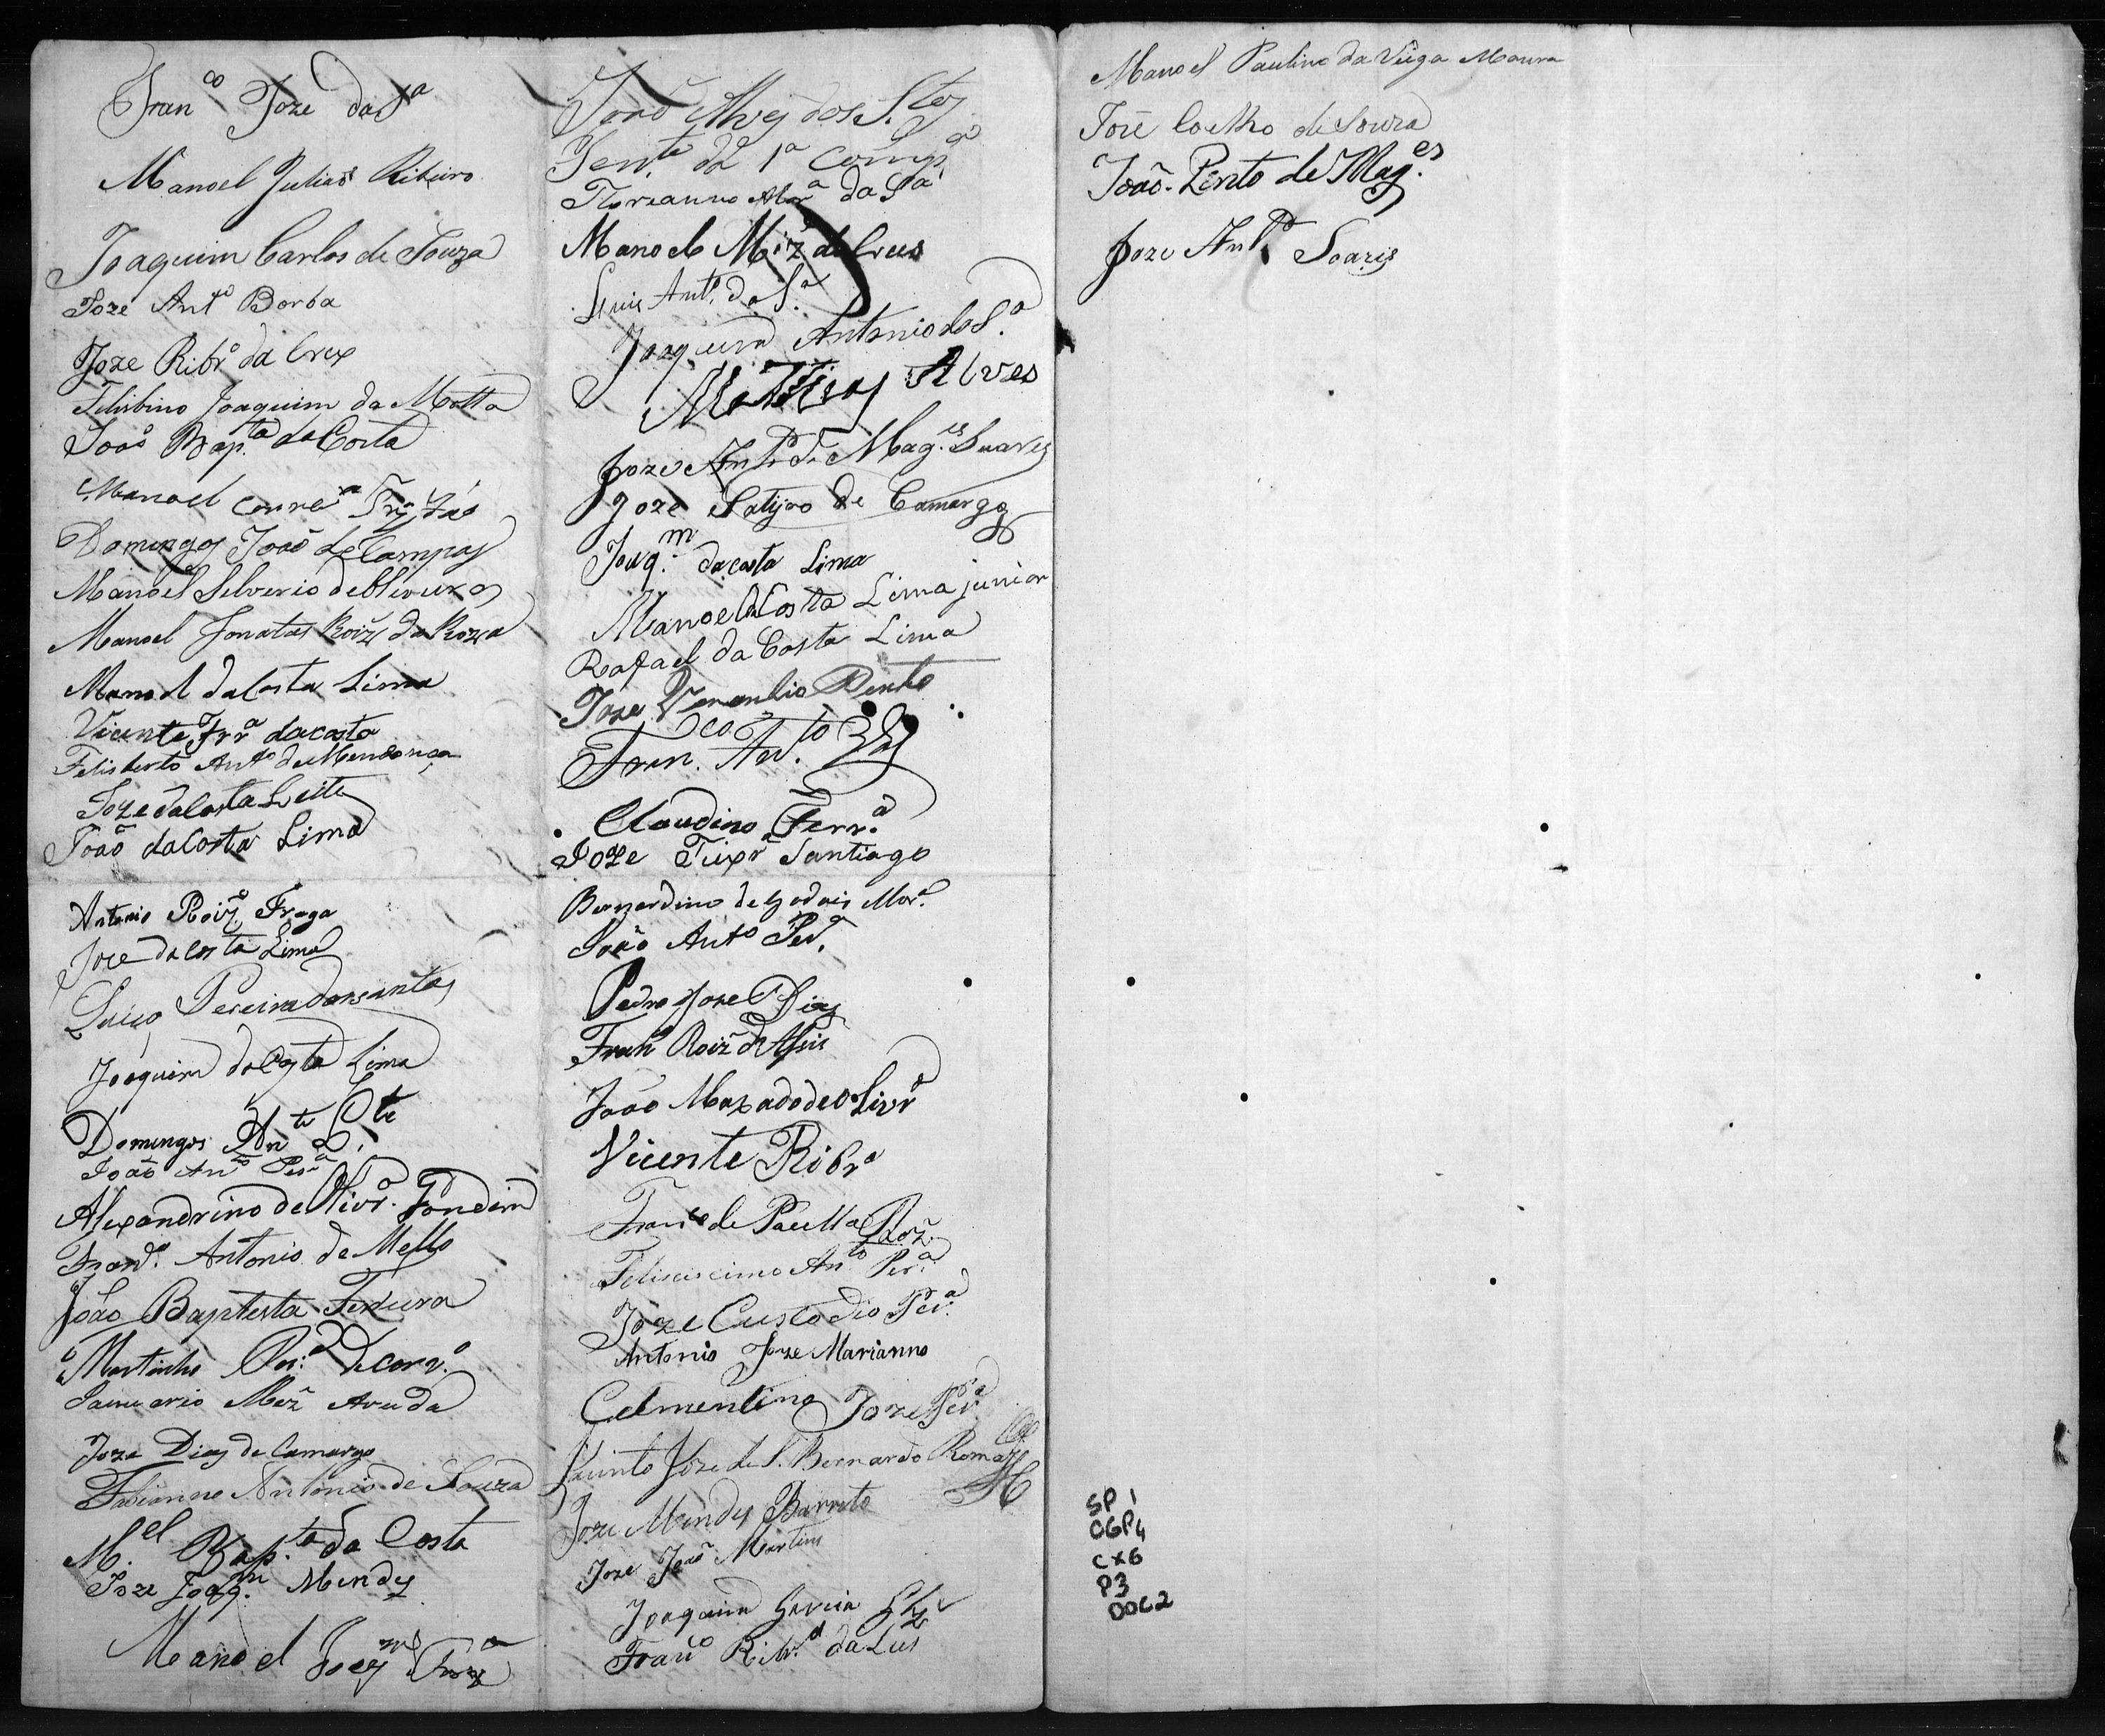 Fran.co Joze da S.a
Manoel Juliaõ Ribeiro
Joaquim Carlos de Souza
Joze Ant.o Borba
Joze Ribr.o da Crux
Felisbino Joaquim da Motta
Joaõ Bap.ta da Costa
Manoel Correa
Domingos Joaõ de Campos
Manoel Silverio de Oliveira
Manoel Jonatas Roiz da Roza
Manoel da Costa Lima
Vicente Frr.a da costa
Felisberto Ant.o de Mendonça
Joze da Costa Leite
Joaõ da Costa Lima
Antonio Roiz Fraga
Joze da Costa Lima
Pereira dos santos
Joaquim da Costa Lima
Domingos An.to L.te
Joaõ An.to Per.a
Alexandrino de Olivr.a Gondim
Fran.co Antonio de Mello
Joaõ Baptista Teixeira
Martinho Per.a de carv.o
Januario Miz Aruda
Joze Dias de Camargo
Fabianno Antonio de Souza
M.el Bap.ta da Costa
Joze Joaq.m Mendes
Manoel Joaq.m
Joaõ Alvez dos S.tos
Ten.te da 1a Comp.a
Florianno Mor.a da S.a
Manoel Miz da Crus
Luis Ant.o da S.a
Joaquim Antonio da S.a
Mathias Alves
Joze Ant.o de Mag.es Suares
Joze Satyro de Camargo
Joaq.m da costa Lima
Manoel da Costa Lima junior
Rafael da Costa Lima
Joze Venancio Pinto
Fran.co An.to
Claudino Ferr.a
Joze Teixr.a Santiago
Bernardino de Godois Mor.a
Joaõ Ant.o Per.a
Pedro Joze Dias
Fran.co Roiz de Assis
Joaõ Maxado de Olivr.a
Vicente Ribr.o
Fran.co de Paulla Roiz
Feliscicimo An.to Per.a
Joze Custodio Per.a
Antonio Joze Marianno
Celmentino Joze Per.a
Jacinto Joze de S. Bernardo Roma
Joze Mendes Barreto
Joze Joaõ Martins
Joaquim Garcia
Fran.co Ribr.o da Lus
Manoel Paulino da Veiga Moura
José Coelho de Souza
Joaõ Pinto de Mag.es
Joze Ant.o Soares
SP 1
CGP4
CX6
P3
DOC2